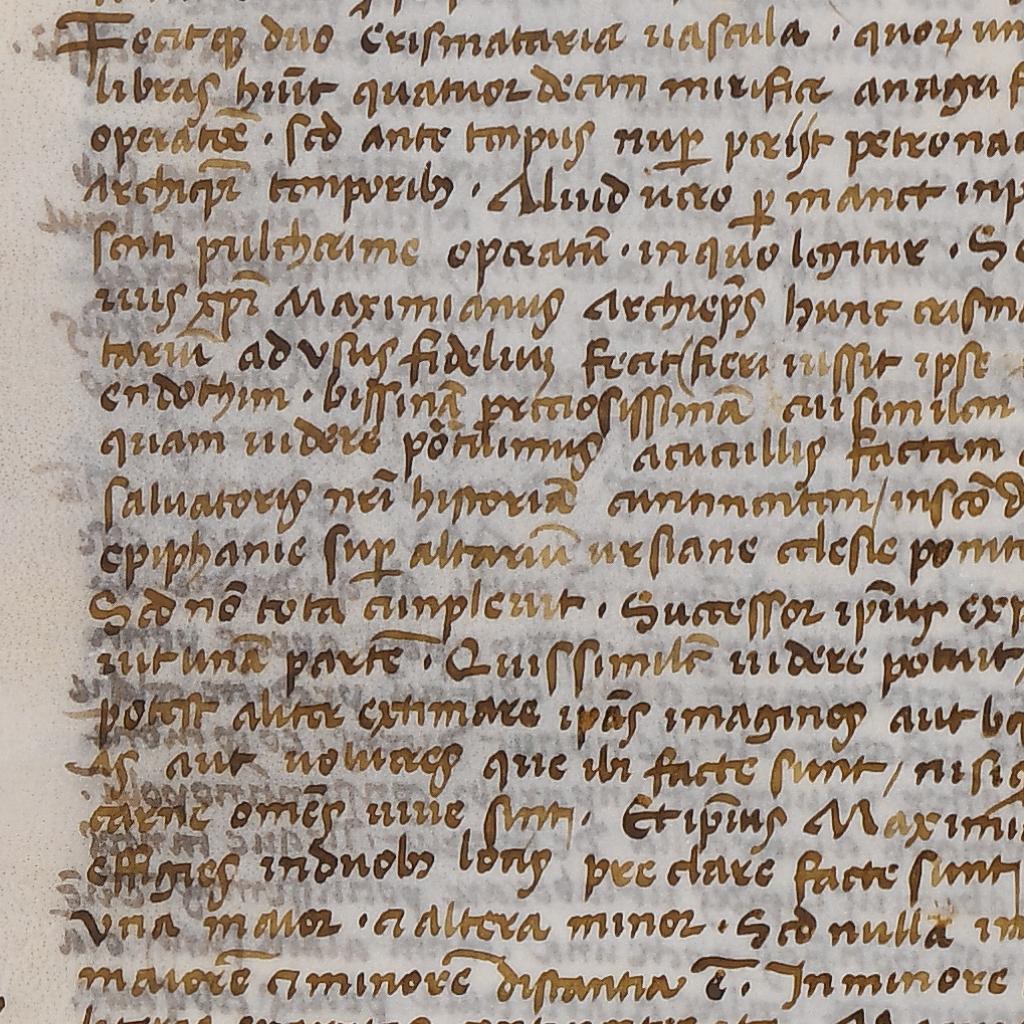 Fecitqꝫ duo crismataria uascula · quoꝝ un
libras hūt quatuordecim mirifice anagrif
operatoē · sed ante tempus nuꝑ periit petronac
archiep̄i temporibꝫ · Aliud uero ꝑmanet inp
senti pulcherime operatū · in quo legitur · Se
uus xp̄i Maximianus archiep̄s hunc crisma
tariū ad vsus fideliuꝫ fecit fieri iussit ipse
endothim · bissinā preciosissimā cui similem
quam uidere potuimus acucullis factam
saluatoris nr̄i historiā continentem / inscōd
epiphanie suꝑ altariū vrsiane eclesie ponit
Sed nō tota compleuit · Successor ip̄ius exp
iuit unā partē · Quis similē uidere potuit /
potest aliter extimare ip̄as imagines aut be
as aut uolucres que ibi facte sunt / nisi q
carne om̄es uiue sint · Et ip̄ius Maximi
effigies in duobꝫ locis preclare facte sunt
vna maior · et altera minor · Sed nulla in
maiorē et minorē distantia ē · In minore